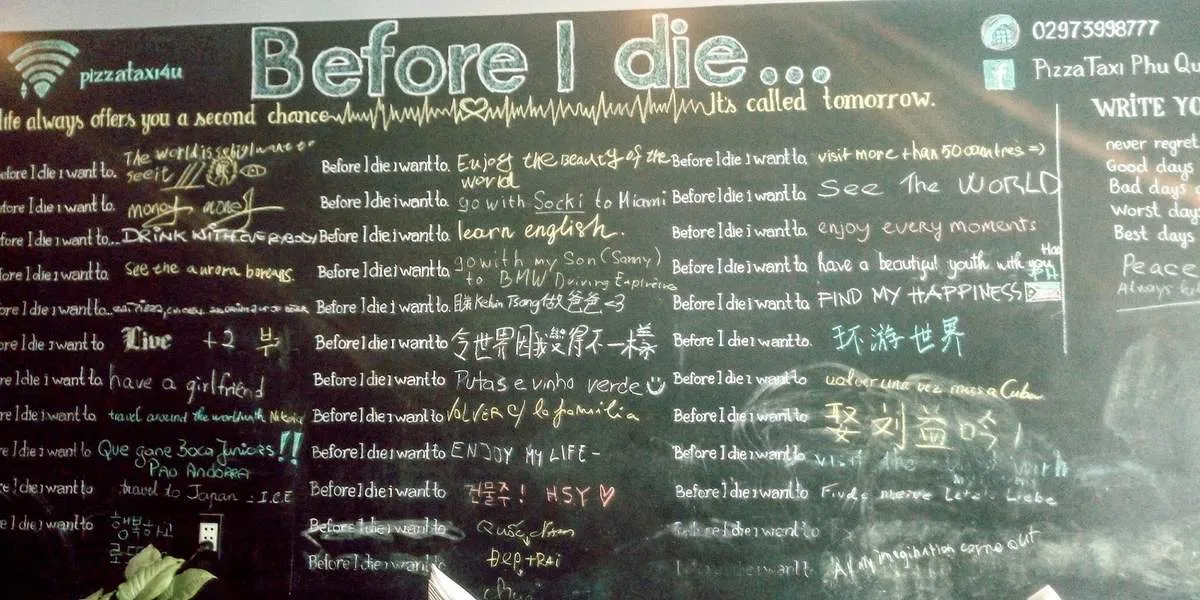 pizzataxi4u
Before I die...
02973998777
PizzaTaxi Phu Qu
life always offers you a second chance
It's called tomorrow.
WRITE YO
never regret
Good days
Bad days
Worst day
Best days
Peace
Always
efore I die I want to. The world is
see it
efore I die I want to. money money
fore I die I want to... DRINK WITH EVERYBODY
fore I die I want to. see the aurora boreays
ore I die I want to...
ore I die I want to Live +2 부
re I die I want to have a girlfriend
re I die I want to travel around the world with
e I die I want to Que gane Boca Juniors!!
PAU ANDORRA
e I die I want to travel to Japan - I.C.E
e I die I want to 행복하고
Before I die I want to. Enjoy the Beauty of the
world
Before I die I want to go with Socki to Miami
Before I die I want to learn english.
Before I die I want to go with my Son (Samy)
to BMW Driving Experience
Before I die I want to Kelvin Tsang 做爸爸 <3
Before I die I want to 令世界因我變得不一樣
Before I die I want to Putas e vinho verde
Before I die I want to VOLVER c/ la familia
Before I die I want to ENJOY MY LIFE -
Before I die I want to 건물주! HSY
Before I die I want to
Before I die I want t ĐẸP + TRAI
Before I die I want to visit more than 50 countries =)
Before I die I want to. See The WORLD
Before I die I want to enjoy every moments
Before I die I want to have a beautiful youth with you
Before I die I want to FIND MY HAPPINESS
Before I die I want to. 环游世界
Before I die I want to volver una vez mas a Cuba
Before I die I want to 娶刘益吟
Before I die I want to visit the with
Before I die I want to Finde meine Liebe
Before I die I want to
I die I want t All my imagination come out